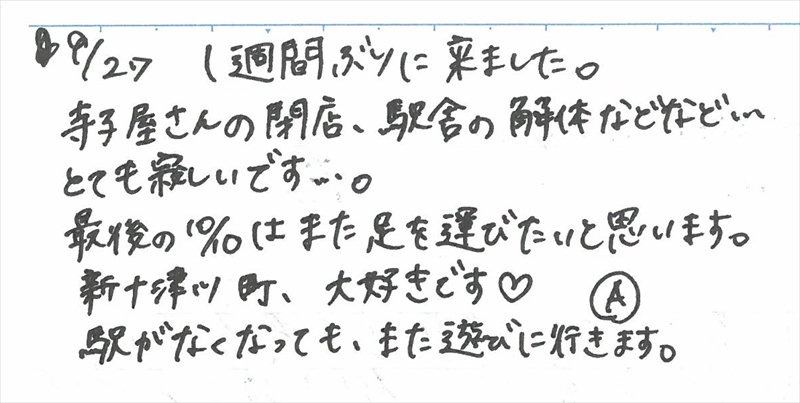 9/27 1週間ぶりに来ました。
寺子屋さんの閉店、駅舎の解体などなど…
とても寂しいです…。
最後の10/10はまた足を運びたいと思います。
新十津川町、大好きです♡ Ⓐ
駅がなくなっても、また遊びに行きます。